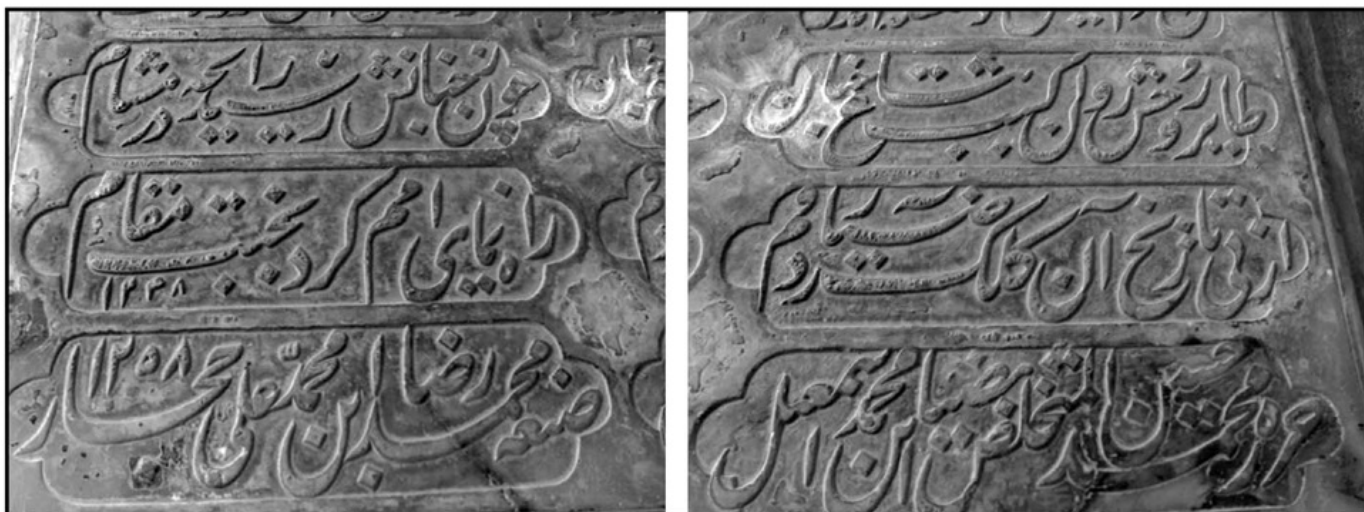 طایر روحش روان گشت بباغ جنان
چون جنانش رایحه در مشام
از پی تاریخ آن کلک ضیا زد رقم
راه نمای امم کرد بجنت مقام ۱۲۴۸
حرره المتخلص بضیا ابن محمد اسمعیل
صنعه محمد رضا ابن محمد علی حجار ۱۲۵۸